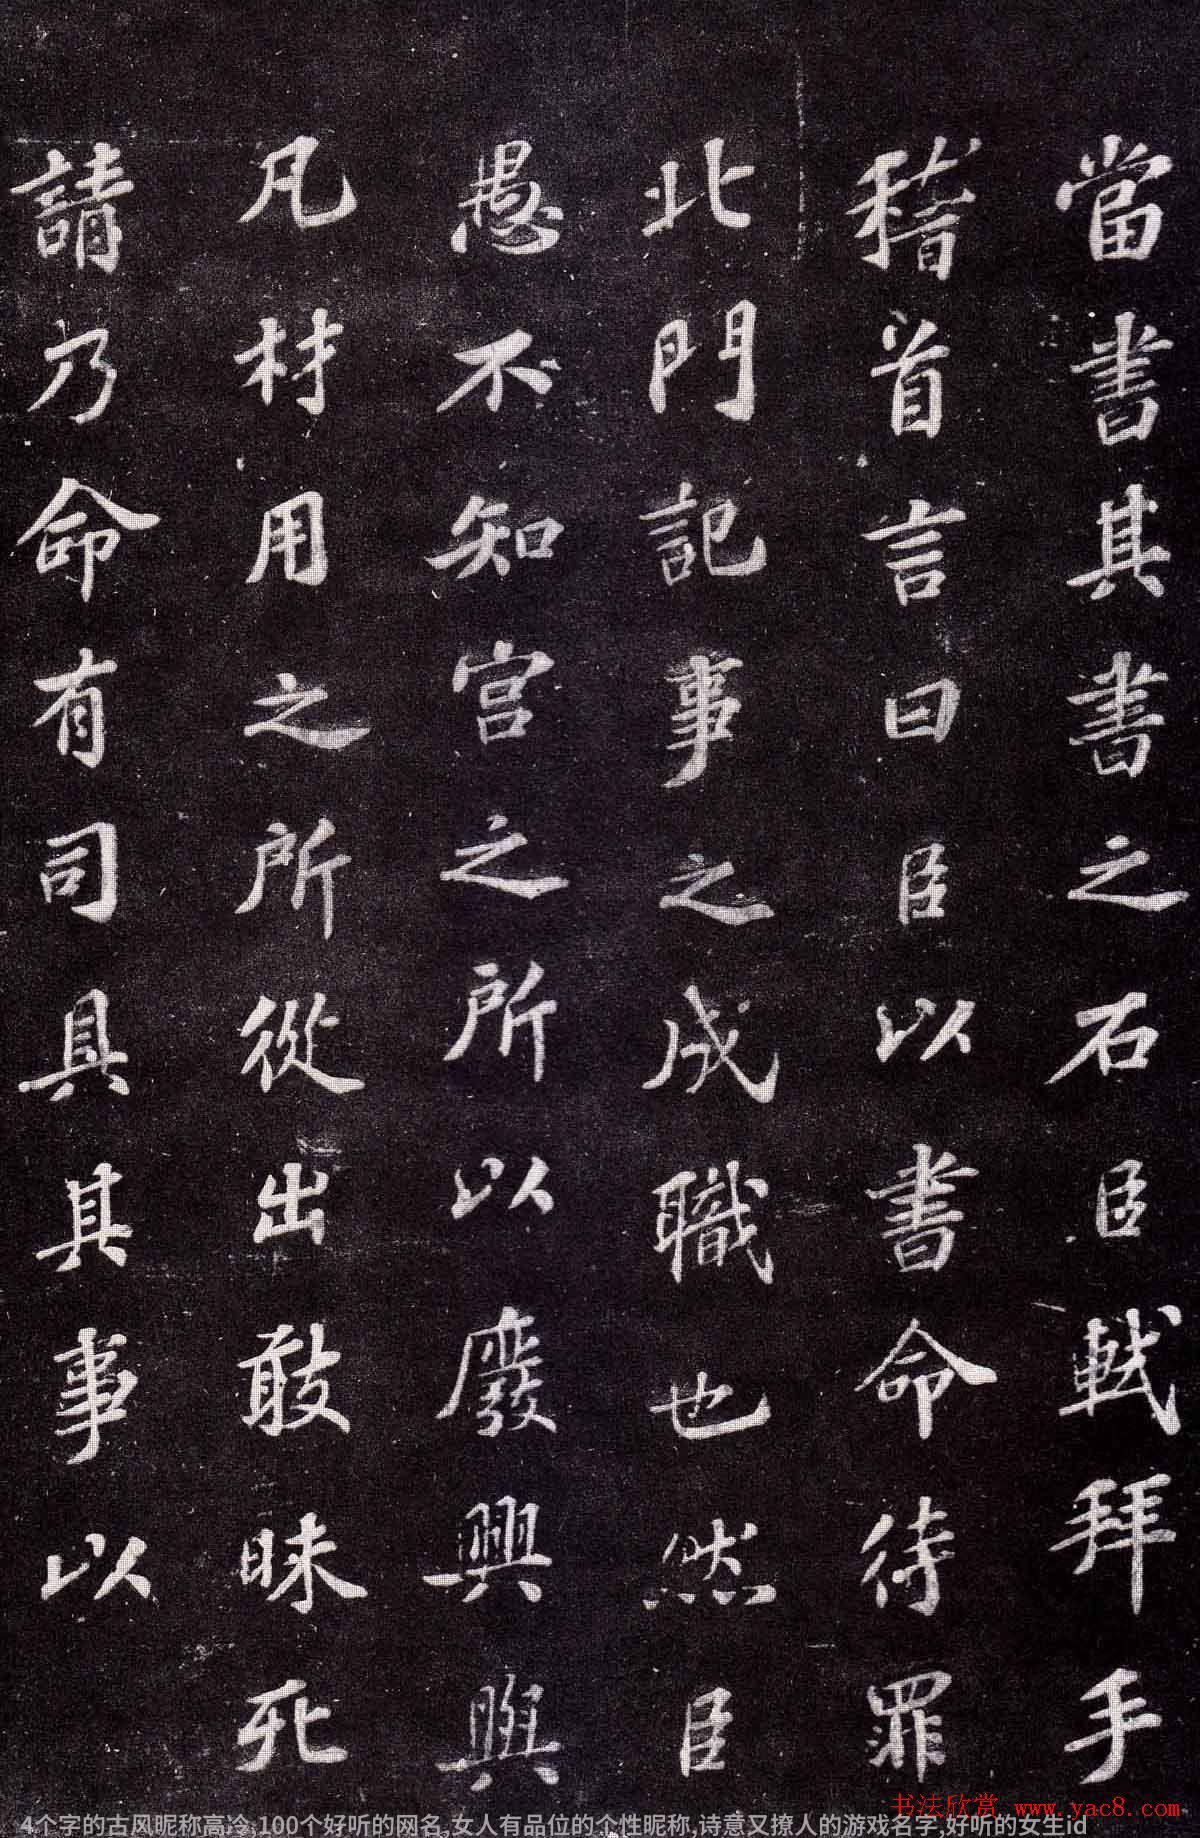 當書其書之石臣軾拜手
稽首言曰臣以書命待罪
北門記事之成職也然臣
愚不知宫之所以廢興與
凡材用之所從出敢昧死
請乃命有司具其事以
书法欣赏 www.yac8.com
4个字的古风昵称高冷,100个好听的网名,女人有品位的个性昵称,诗意又撩人的游戏名字,好听的女生id